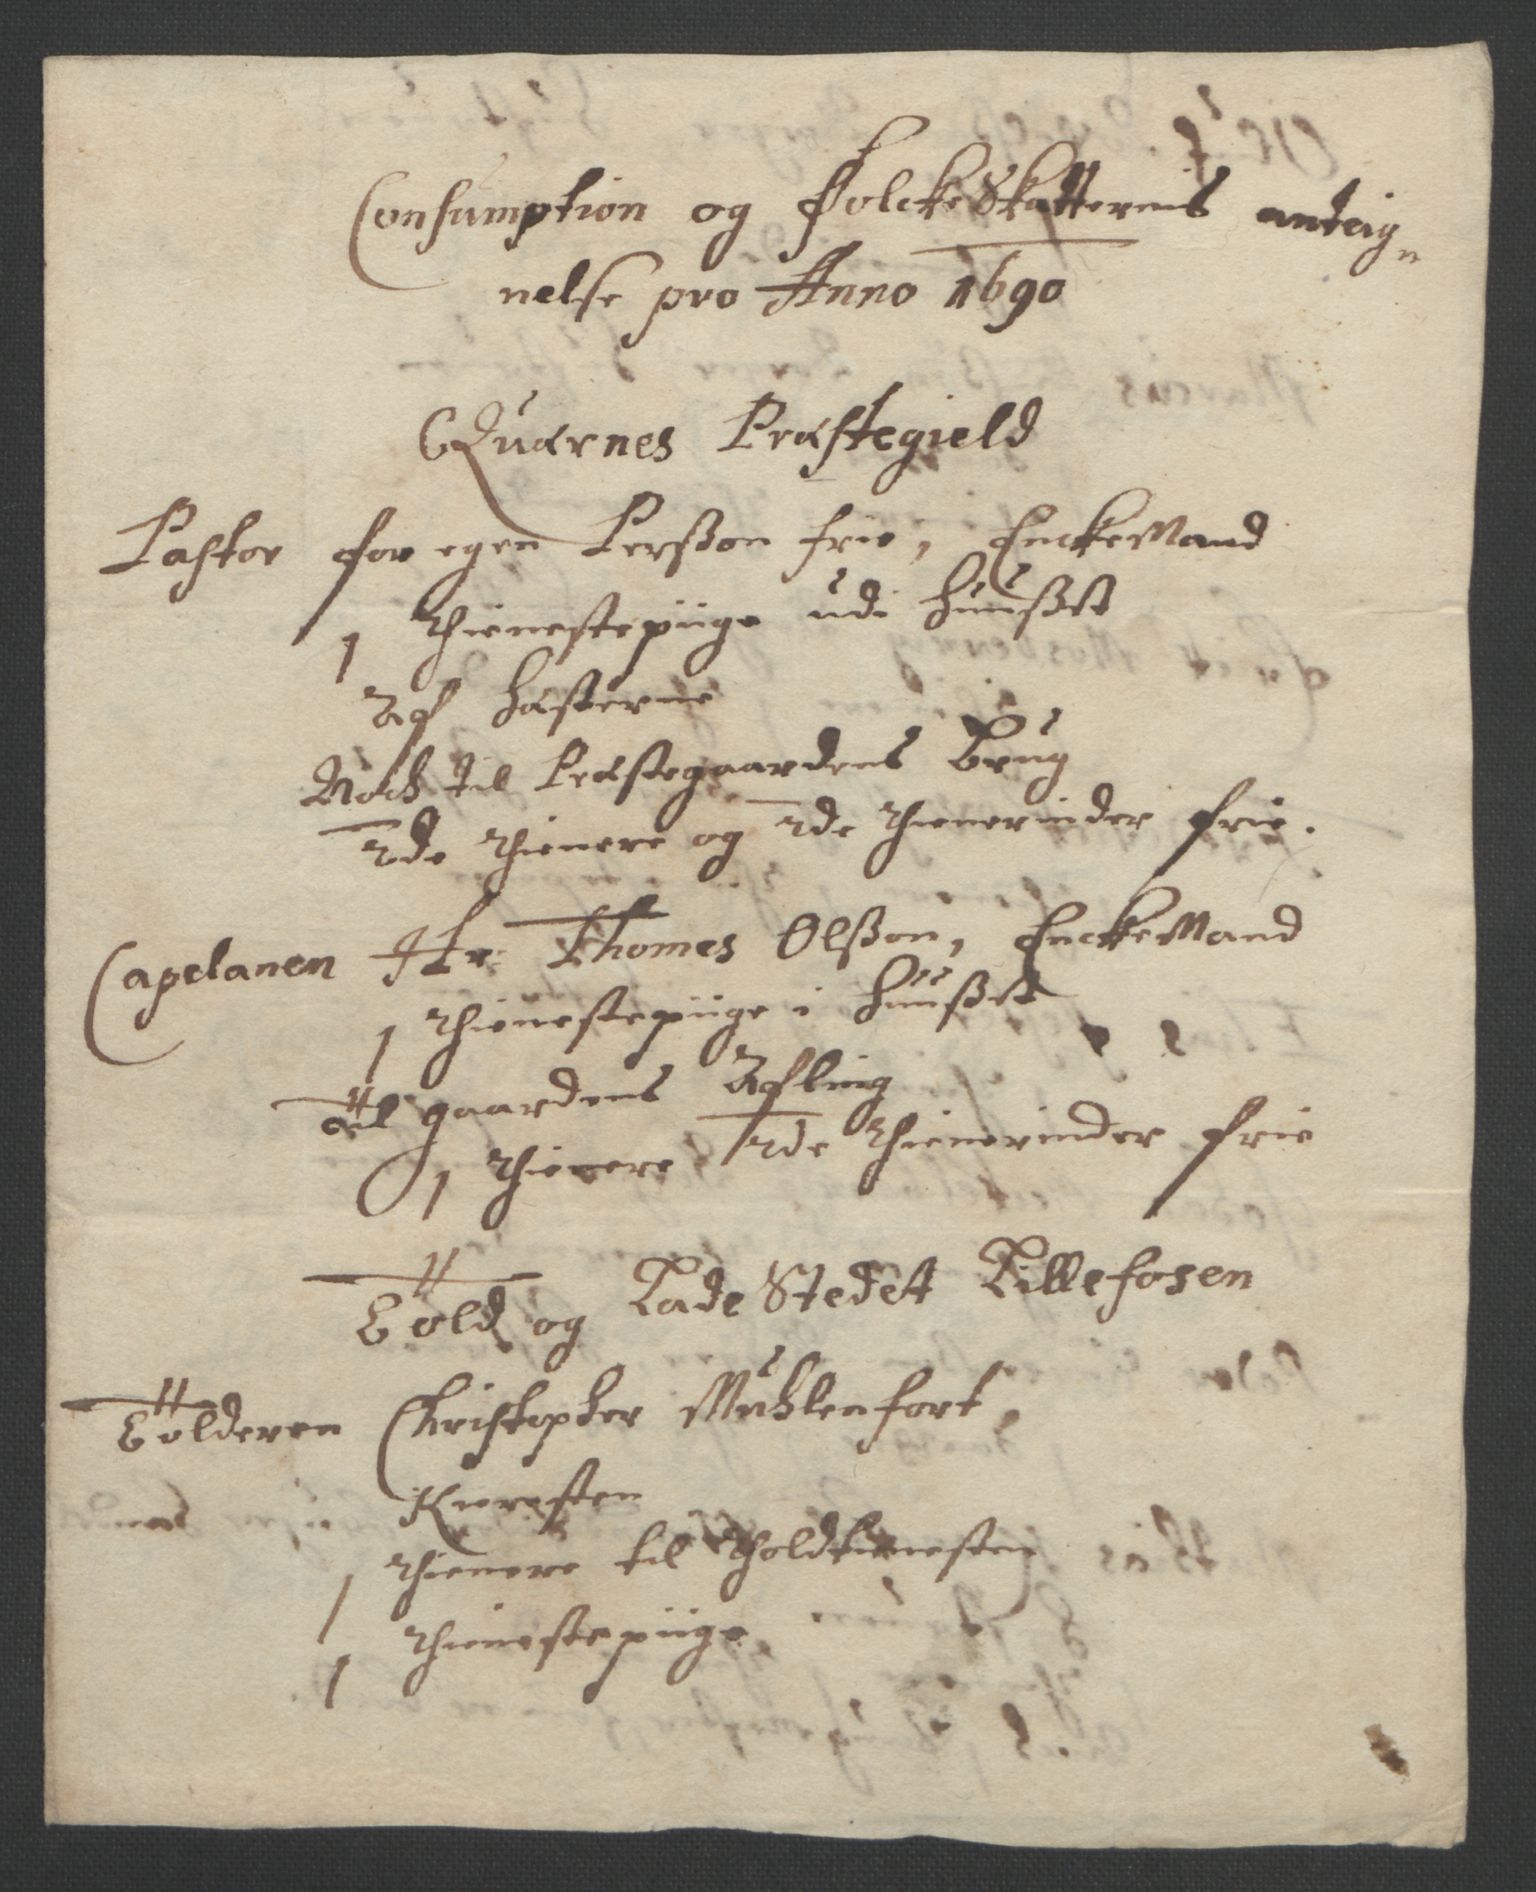 Consumption og FolckeSkatternis anteig-
nelse pro Anno 1690
Quærnes Præstegield
Pastor for egen Persson frie, EnckeMand
1 thienestepiige udi huusset
Af hæsterne
Noch til Præstegaardens Brug
2de thienere og 2de thienerinder frie.
Capelanen Hr: Thomes Olsson, EnckeMand
1 thienestepiige i huusset
Til gaardens Afling
1 thienere 2de thienerinder frie
Told og LadeStedet Lillefosen
Tolderen Christopher Mühlenfort,
Kieresten
1 thienere til tholdtienesten
1 thienestepiige